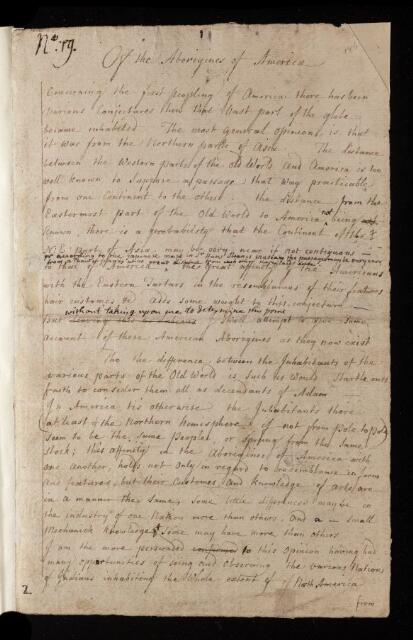 No. 19.
Of the Aborigines of America
Concerning the first peopling of America there has been
various Conjectures how that Vast part of the globe
became inhabited The most General opinion is that
it was from the Northern parts of Asia The distance
between the Western parts of the old World and America is too
well known to Suppose a passage that way practicable
from one Continent to the other the distance from the
Eastermost part of the Old World to America not being
known, there is a probability that the Continent of the
N:E: part of Asia may be very near if not contiguous
to that of America the Great affinity of the Americans
with the Eastern Tartars in the resemblance of their features
hair customs &c adds some weight to this conjecture
without taking upon me to determine this point
But I shall attempt to give Some
account of these American Aborigines as they now exist
Tho the difference between the Inhabitants of the
various parts of the Old World is Such as would Startle ones
faith to consider them all as decendants of Adam
In America tis otherwise the Inhabitants there
(at least of the Northern Hemisphere if not from Pole to Pole)
Seem to be the Same People or Sprung from the Same
Stock; this affinity in the Aborigines of America with
one another, holds not Only in regard to resemblance in form
and features, but their Customs and Knowledge of arts are
in a manner the Same, Some little differences may be in
the industry of one Nation more than others and a small
Mechanick Knowledge Some may have more than others
I am the more persuaded to this Opinion having had
many opportunities of Seing and Observing the various Nations
of Indians inhabiting the Whole extent of North America
from
2